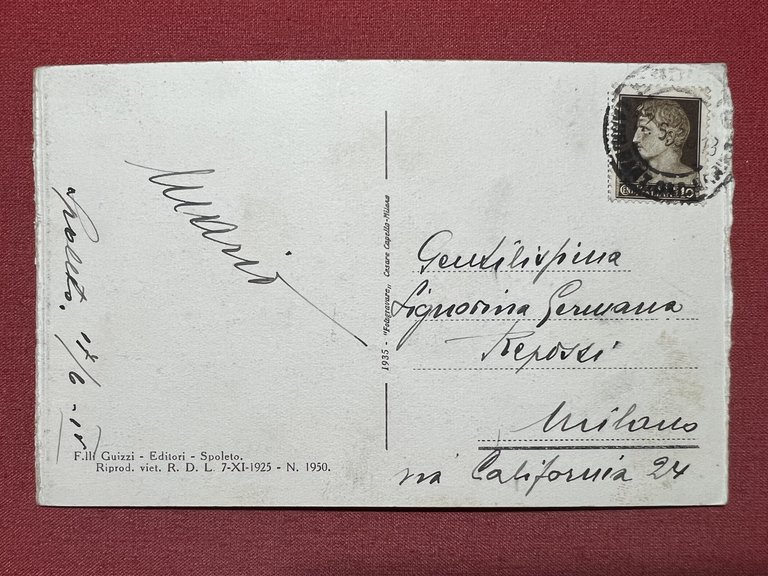 Spoleto. 17/6
Mario
F.lli Guizzi - Editori - Spoleto.
Riprod. viet. R. D. L. 7-XI-1925 - N. 1950.
1935 - "Fotogravure„ Cesare Capello-Milano
10
Gentilissima
Signorina Germana
Repossi
Milano
via California 24